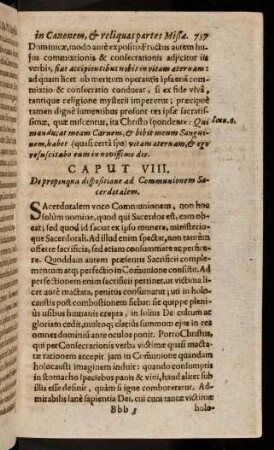 in Canonem, & reliquas partes Missæ. 757
Dominicæ, modo antè exposito: Fructus autem hu-
jus commixtionis & consecrationis adjicitur iis
verbis, fiat accipientibus nobis in vitam æternam:
ad quam licet ob meritum operantis ipsa etiā com-
mixtio & consecratio conducat, si ex fide vivâ,
tantíque religione mysterii imperetur; præcipuè
tamen dignè sumentibus prosunt res ipsæ sacratis-
simæ, quæ miscentur, ita Christo spondente: Qui
manducat meam Carnem, & bibit meum Sangui-
nem, habet (quasi certâ spe) vitam æternam, & ego
resuscitabo eum in novissimo die.
Ioan. 6.
CAPUT VIII.
De propinqua dispositione ad Communionem Sa-
cerdotalem.
Sacerdotalem voco Communionem, non hoc
solùm nomine, quod qui Sacerdos est, eam ob-
eat; sed quod id faciat ex ipso munere, ministerio-
que Sacerdotali. Ad illud enim spectat, non tantùm
offerre sacrificia, sed etiam consummare ac perfice-
re. Quoddam autem præsentis Sacrificii comple-
mentum atq; perfectio in Comunione consistit. Ad
perfectionem enim sacrificii pertinet, ut victima li-
cet antè mactata, penitus consumatur; uti in holo-
caustis post combustionem siebat: sic quippe pleni-
ùs usibus humanis erepta, in solius Dei cultum ac
gloriam cedit, multoq; clariùs summum ejus in res
omnes dominiū ante oculos ponit. Porrò Christus,
qui per Consecrationis verba victimæ quasi macta-
tæ rationem accepit, jam in Comunione quandam
holocausti imaginem induit: quando consumptis
in stomacho speciebus panis & vini, haud aliter sub
illis esse desinit, quàm si igne combureretur. Ad-
mirabilis sanè sapientia Dei, cui cura tantæ victimæ
Bbb 3 holo-